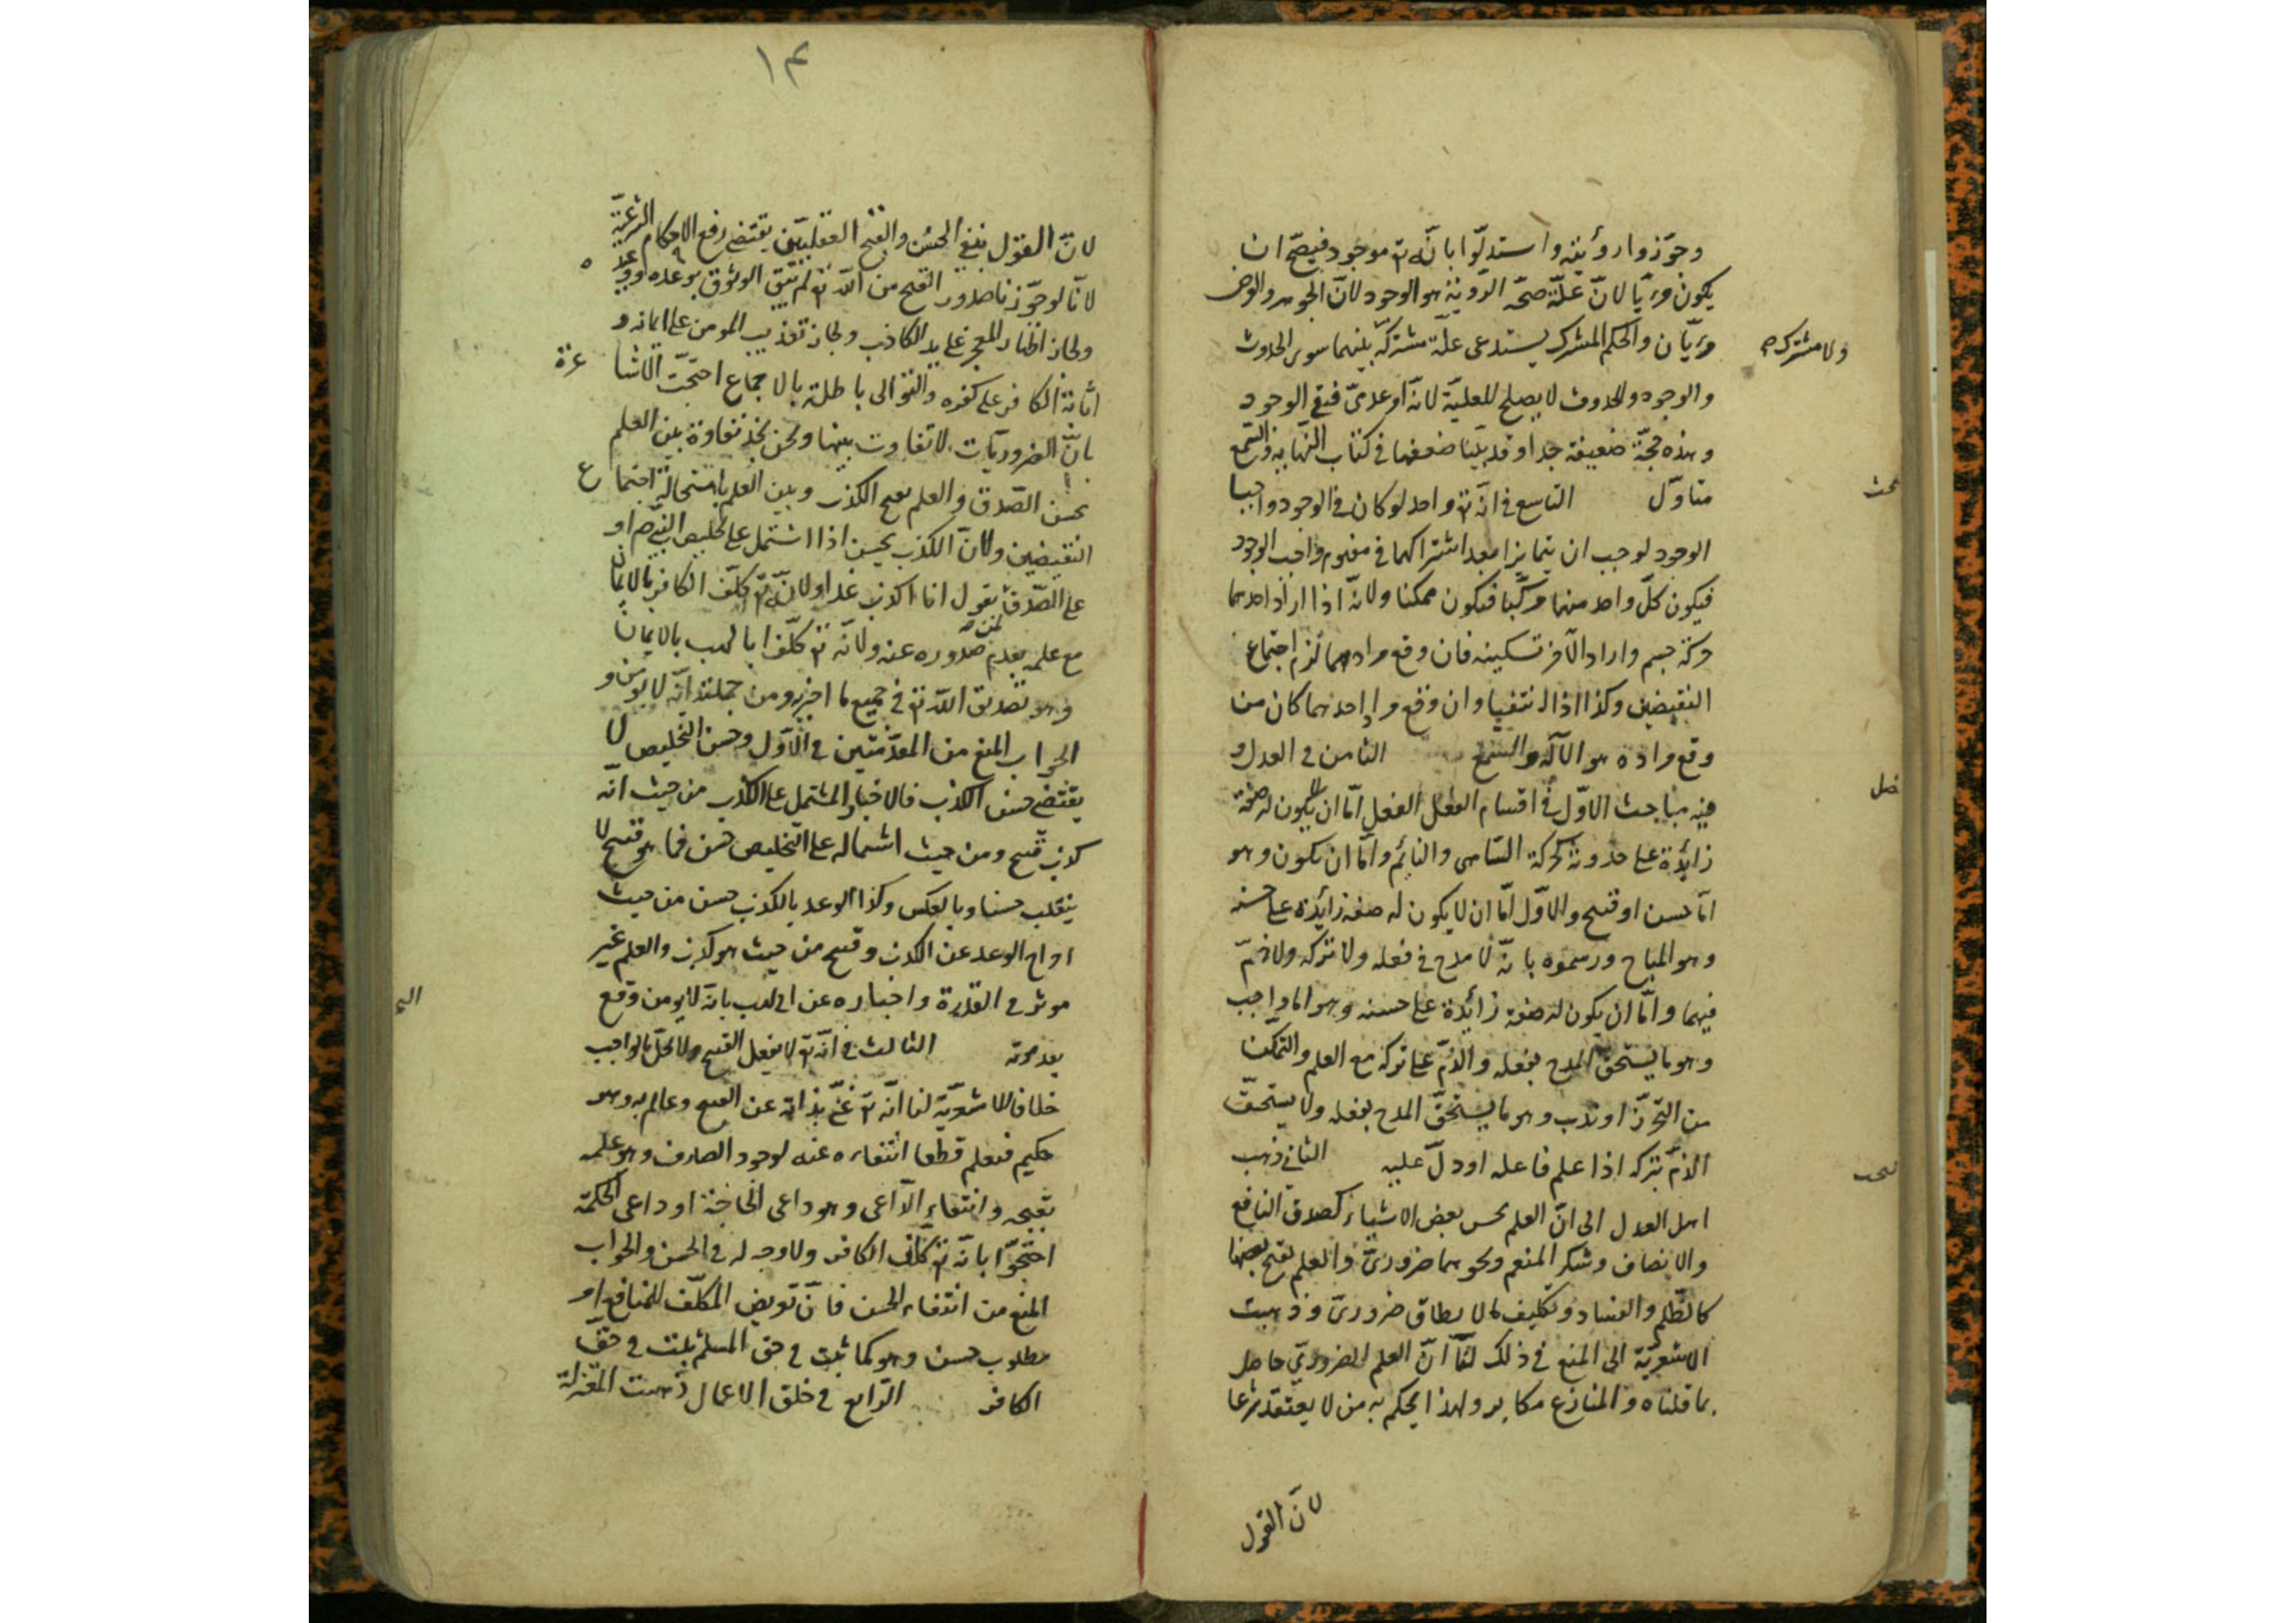 وجوّزوا رؤيته واستدلّوا بانّه تع موجود فيصحّ ان
يكون مرئيّا لانّ علّة صحّة الرؤية هو الوجود لانّ الجوهر والعرض
مرئيّان والحكم المشترك يستدعى علّة مشتركة ولا مشترك بينهما سوى الحدوث
والوجود والحدوث لا يصلح للعلّية لانّه امر عدمىّ فبقى الوجود
وهذه حجّة ضعيفة جدا وقد بيّنا ضعفها فى كتاب النهاية والسمع
متاوّل التاسع فى انّه تع واحد لو كان فى الوجود واجبا
الوجود لوجب ان يتمايزا بعد اشتراكهما فى مفهوم واجب الوجود
فيكون كلّ واحد منهما مركّبا فيكون ممكنا ولانّه اذا اراد احدهما
حركة جسم واراد الآخر تسكينه فان وقع مرادهما لزم اجتماع
النقيضين وكذا اذا انتفيا وان وقع مراد احدهما كان من
وقع مراده هو الآله والسمع الثامن فى العدل و
فيه مباحث الاوّل فى اقسام الفعل الفعل امّا ان لا يكون له صفة
زائدة على حدوثه كحركة الساهى والنائم وامّا ان يكون وهو
امّا حسن او قبيح والاوّل امّا ان لا يكون له صفة زائدة على حسنه
وهو المباح ورسموه بانّه لا مدح فى فعله ولا تركه ولا ذمّ
فيهما وامّا ان يكون له صفة زائدة على حسنه وهو اما واجب
وهو ما يستحق المدح بفعله والذمّ على تركه مع العلم والتمكّن
من التحرّز او ندب وهو ما يستحقّ المدح بفعله ولا يستحقّ
الذمّ بتركه اذا علم فاعله او دلّ عليه الثانى ذهب
اهل العدل الى انّ العلم بحسن بعض الاشياء كصدق النافع
والانصاف وشكر المنعم ونحوهما ضرورىّ والعلم بقبح بعضها
كالظّلم والفساد وتكليف ما لا يطاق ضرورىّ وذهبت
الاشعريّة الى المنع فى ذلك لنا انّ العلم الضرورىّ حاصل
بما قلناه والمنازع مكابر ولهذا يحكم به من لا يعتقد شرعا
لانّ القول
بحث
فصل
بحث
١٤
لانّ القول بنفى الحسن والقبح العقليّين يقتضى رفع الاحكام الشرعيّة
لانّا لو جوّزنا صدور القبح من الله تع لم يبق الوثوق بوعده ووعيده
ولجاز اظهار المعجز على يد الكاذب ولجاز تعذيب المومن على ايمانه و
اثابة الكافر على كفره والتوالى باطلة بالاجماع احتجّت الاشاعرة
بانّ الضروريّات لا تفاوت بينها ونحن نجد تفاوتا بين العلم
بحسن الصّدق والعلم بقبح الكذب وبين العلم باستحالة اجتماع
النقيضين ولانّ الكذب يحسن اذا اشتمل على تخليص النبىّ ص او
على الصّدق لمن يقول انا اكذب غدا ولانّه تع كلّف الكافر بالايمان
مع علمه بعدم صدوره عنه ولانّه تع كلّف ابا لهب بالايمان
وهو تصديق الله تع فى جميع ما اخبر به ومن جملته انّه لا يومن و
الجواب المنع من المقدّمتين فى الاوّل وحسن التخليص لا
يقتضى حسن الكذب فالاخبار المشتمل على الكذب من حيث انّه
كذب قبيح ومن حيث اشتماله على التخليص حسن فما هو قبيح لا
ينقلب حسنا وبالعكس وكذا الوعد بالكذب حسن من حيث
اخراج الوعد عن الكذب وقبيح من حيث هو كذب والعلم غير
موثر فى القدرة واخباره عن ابى لهب بانّه لا يومن وقع
بعد موته الثالث فى انّه تع لا يفعل القبيح ولا يخلّ بالواجب
خلافا للاشعريّة لنا انّه تع غنىّ بذاته عن القبيح وعالم به وهو
حكيم فنعلم قطعا انتفاءه عنه لوجود الصارف وهو علمه
بقبحه وانتفاء الدّاعى وهو داعى الحاجة او داعى الحكمة
احتجّوا بانّه تع كلّف الكافر ولا وجه له فى الحسن والجواب
المنع من انتفاء الحسن فانّ تعريض المكلّف للمنافع امر
مطلوب حسن وهو كما ثبت فى حق المسلم يثبت فى حقّ
الكافر الرّابع فى خلق الاعمال ذهبت المعتزلة